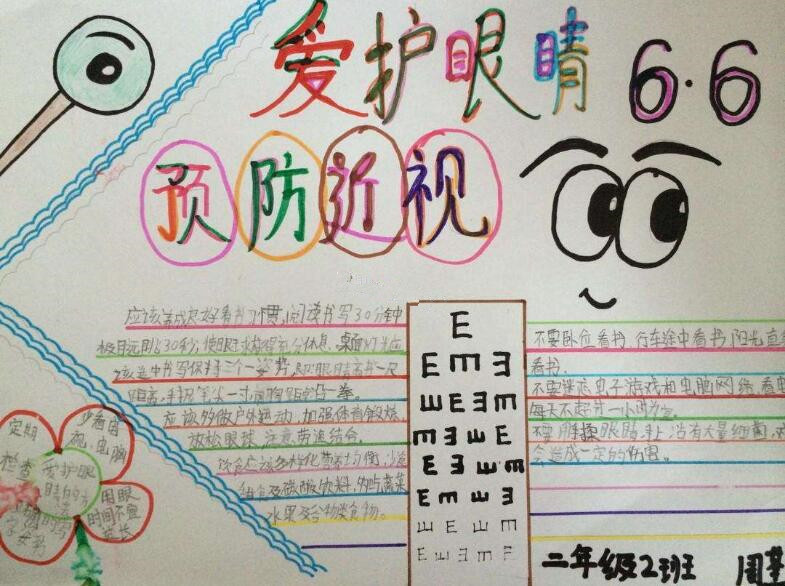 爱护眼睛 6·6
预防近视
应该养成良好看书习惯,阅读书写30分钟
极目远眺30秒,使眼球得到充分休息,桌面灯光应
该适中书写保持三个一姿势,即眼睛离书一尺
距离,手离笔尖一寸,胸离距桌沿一拳。
应该多做户外运动,加强体育锻炼,
放松眼球,注意劳逸结合。
饮食应该多样化营养均衡,少
甜食及碳酸饮料,多蔬菜
水果及谷物类食物。
E
E m E
E W E E m
m E W E
E E W m
E m W E
E W E m
E E m F
不要卧位看书,行车途中看书,阳光直
看书。
不要迷恋电子游戏和电脑网络,看电
每天不超过一小时为宜。
不要用手揉眼睛,手上沾有大量细菌,
会造成一定的伤害。
定期
检查
少看电
视、电脑
爱护眼
睛的方
法
用眼
时间不要
过长
二年级2班